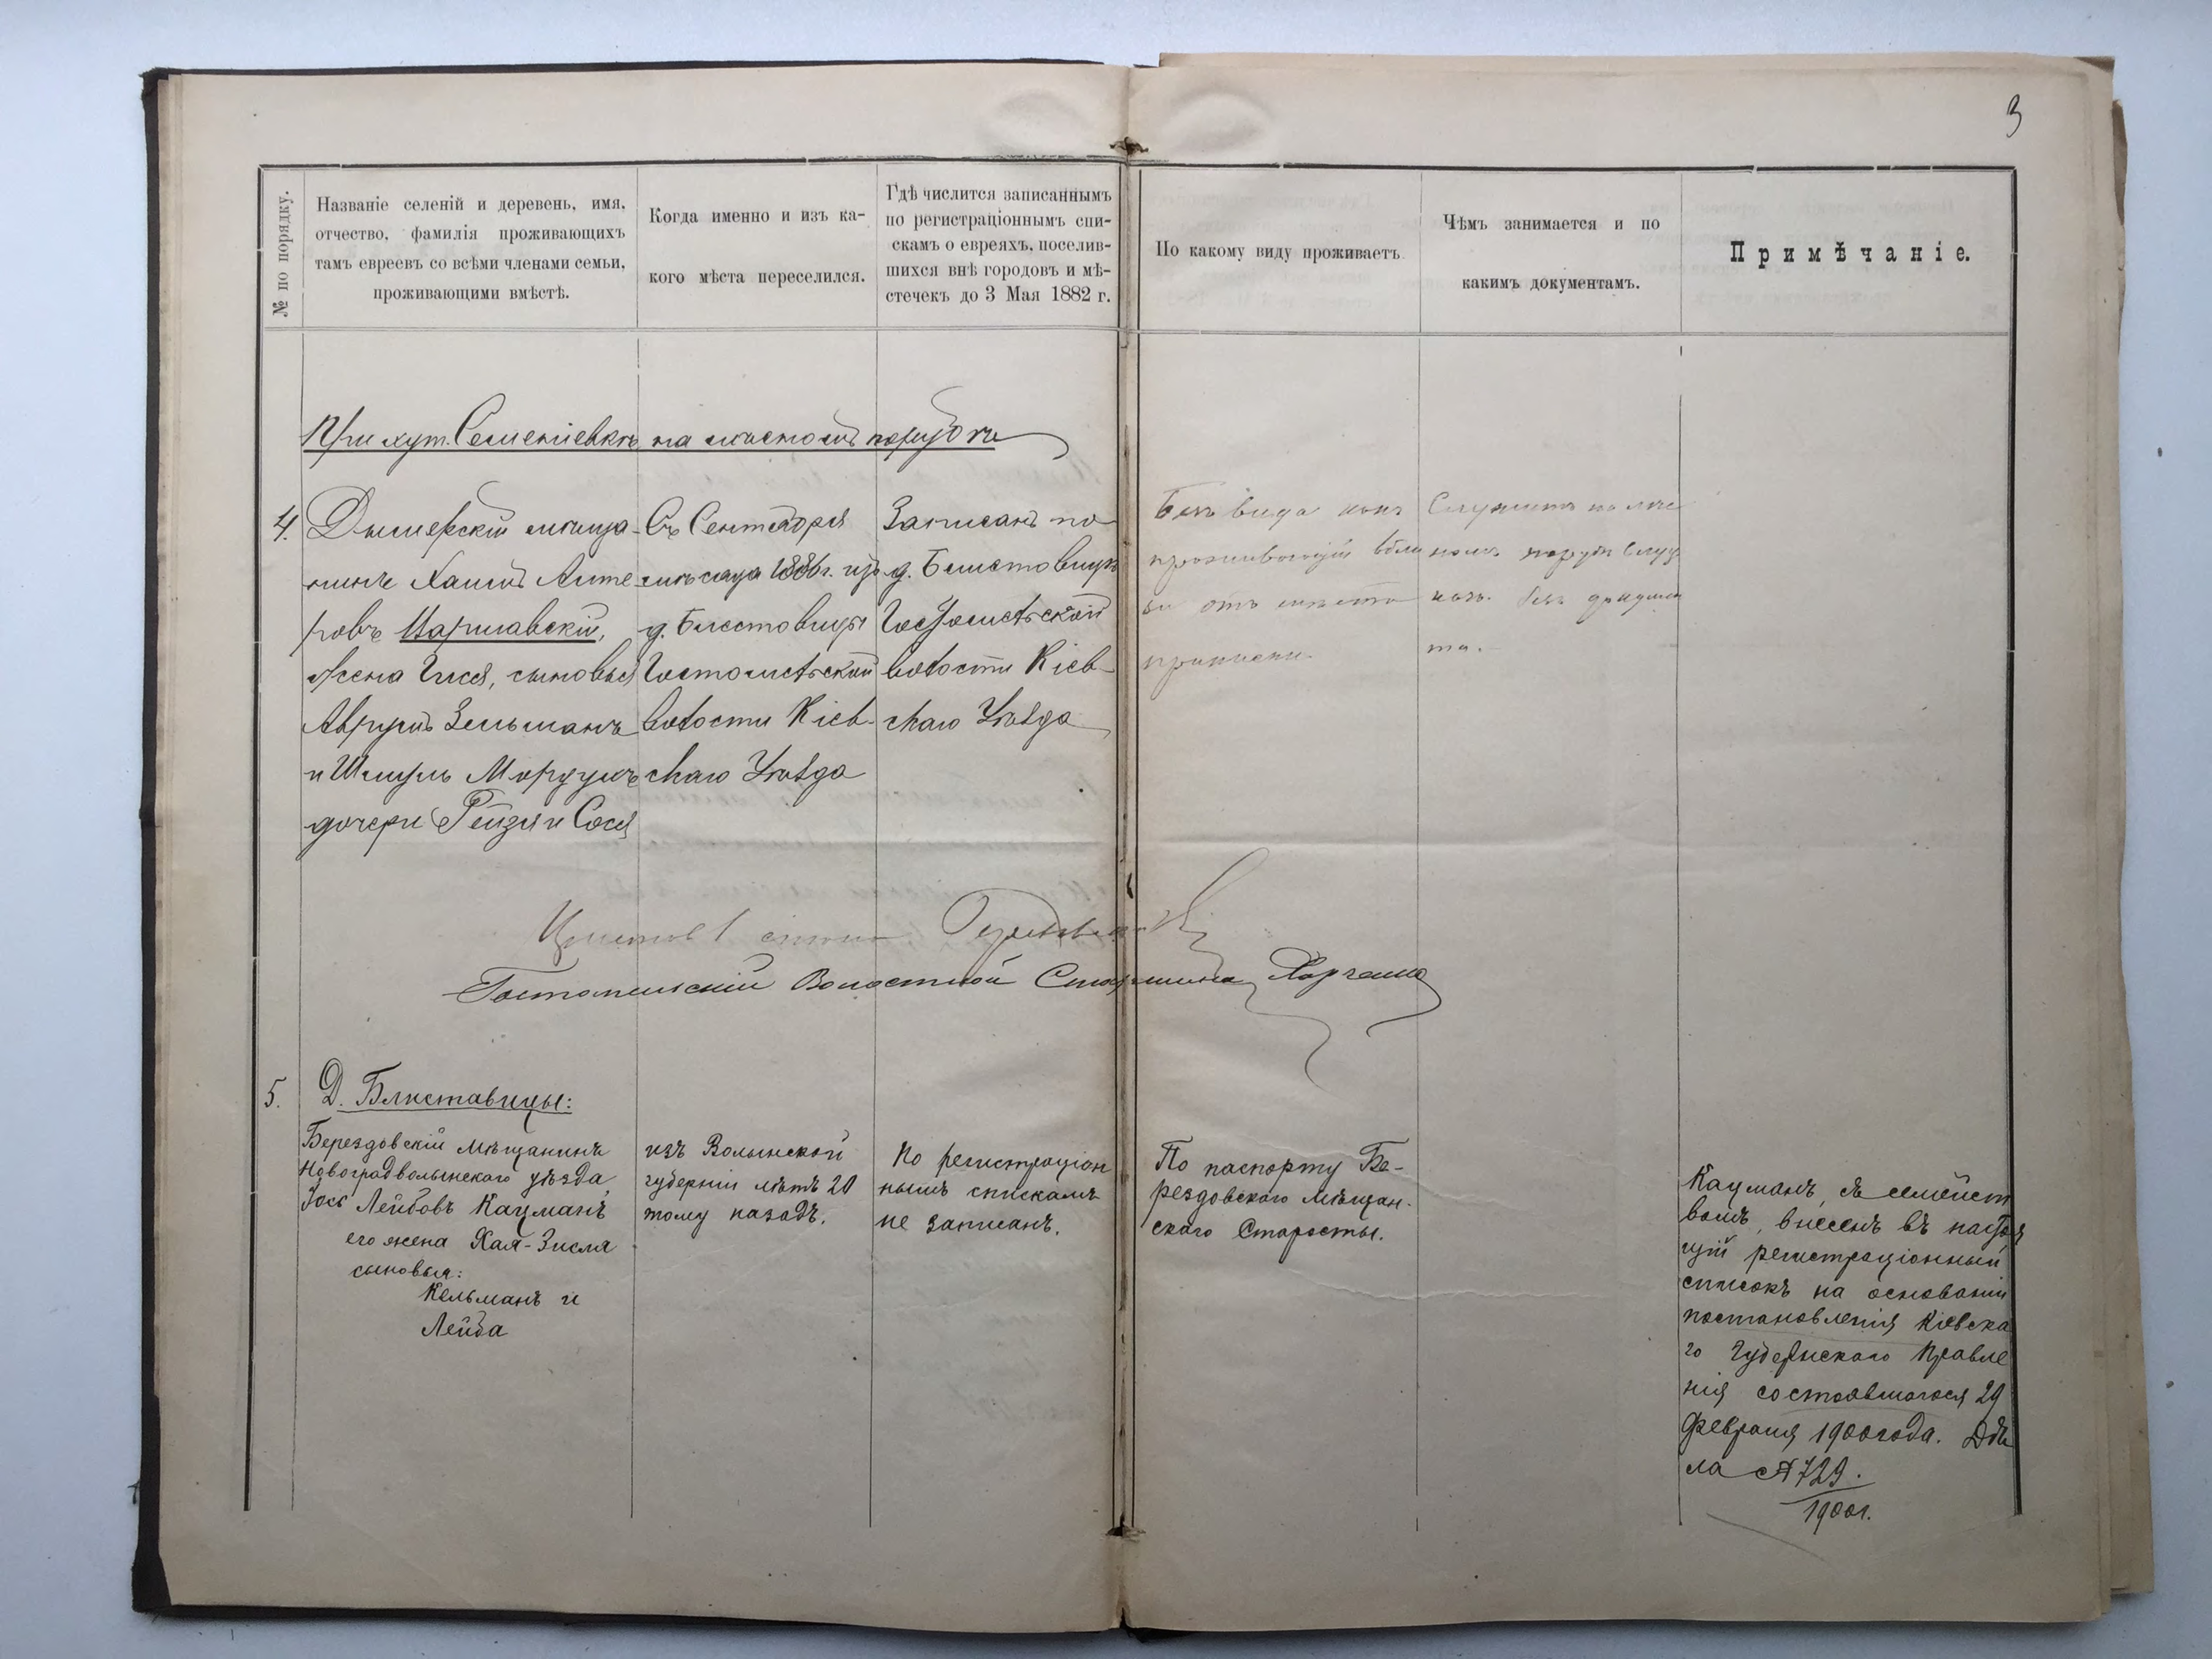 3
№ по порядку.
Названіе селеній и деревень, имя,
отчество, фамилія проживающихъ
тамъ евреевъ со всѣми членами семьи,
проживающими вмѣстѣ.
Когда именно и изъ ка-
кого мѣста переселился.
Гдѣ числится записаннымъ
по регистраціоннымъ спи-
скамъ о евреяхъ, поселив-
шихся внѣ городовъ и мѣ-
стечекъ до 3 Мая 1882 г.
По какому виду проживаетъ
Чѣмъ занимается и по
какимъ документамъ.
Примѣчаніе.
При хут. Семеніевкѣ на
4.
Дымерскій мѣща-
нинъ Хаимъ
ровъ
жена Гися, сыновья
Аврумъ Зельманъ
и Шмуль Мордухъ
дочери Рейзя и Сося
Съ Сентября
мѣсяца 1886 г. изъ
д. Блистовицы
Гостомельской
волости Кіев-
скаго Уѣзда
Записанъ по
д. Блистовицѣ
Гостомельской
волости Кіев-
скаго Уѣзда
Безъ вида какъ
проживающій вбли
зи отъ мѣста
приписки.
Служитъ на лѣс
номъ
безъ докумен
та.
Гостомельскій Волостной Старшина Харченко
5.
Д. Блиставицы:
Берездовскій мѣщанинъ
Новоградволынскаго уѣзда
Іось Лейбовъ Кацманъ
его жена Хая-Зисля
сыновья:
Кельманъ и
Лейба
изъ Волынской
губерніи лѣтъ 20
тому назадъ.
По регистраціон
нымъ спискамъ
не записанъ.
По паспорту Бе-
рездовского Мѣщан-
ского Старосты.
Кацманъ, съ семейст
вомъ, внесенъ въ настоя
щій регистраціонный
списокъ на основаніи
постановленія Кіевска
го Губернскаго Правле
нія состоявшагося 29
Февраля 1900 года. Дѣ
ла № 729.
1900 г.